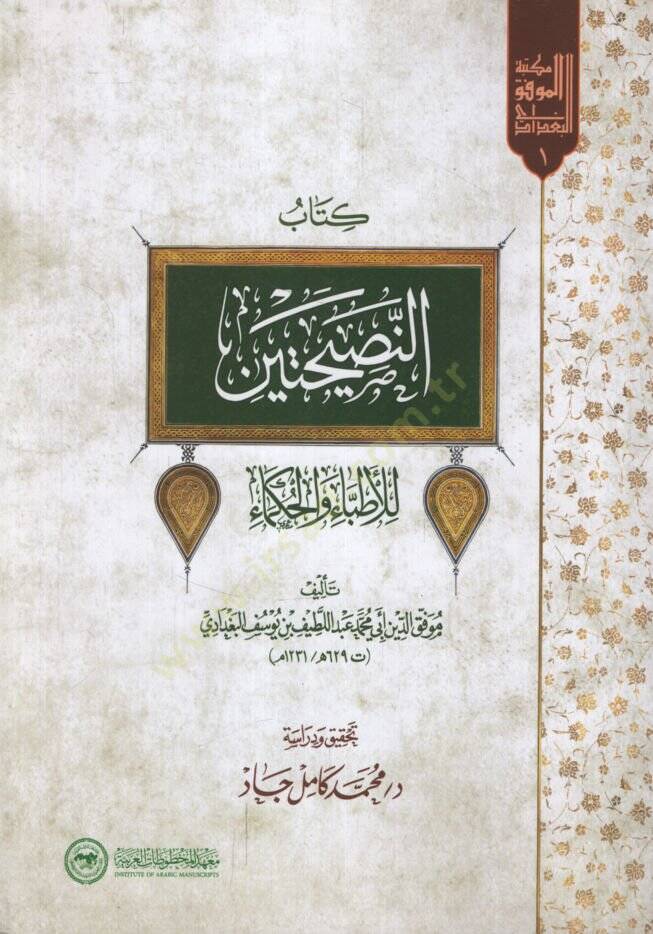 مكتبة
الموفق
البغدادي
١
كِتَابُ
النَّصِيحَتَيْنِ
لِلأَطِبَّاءِ وَالحُكَمَاءِ
تأليف
موفق الدين أبي محمد عبد اللطيف بن يوسف البغدادي
(ت ٦٢٩هـ/١٢٣١م)
تحقيق ودراسة
د/ محمد كامل جاد
معهد المخطوطات العربية
INSTITUTE OF ARABIC MANUSCRIPTS